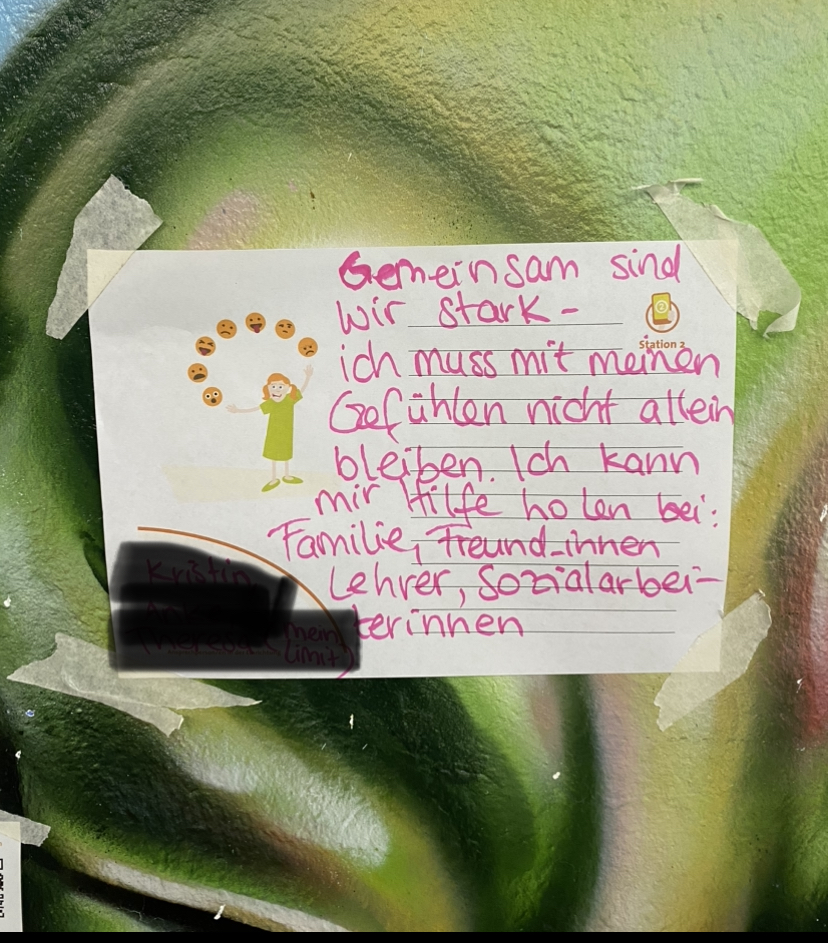 Gemeinsam sind
wir stark -
Station 2
ich muss mit meinen
Gefühlen nicht allein
bleiben. Ich kann
mir Hilfe holen bei:
Familie, Freund_innen
Lehrer, Sozialarbei-
terinnen